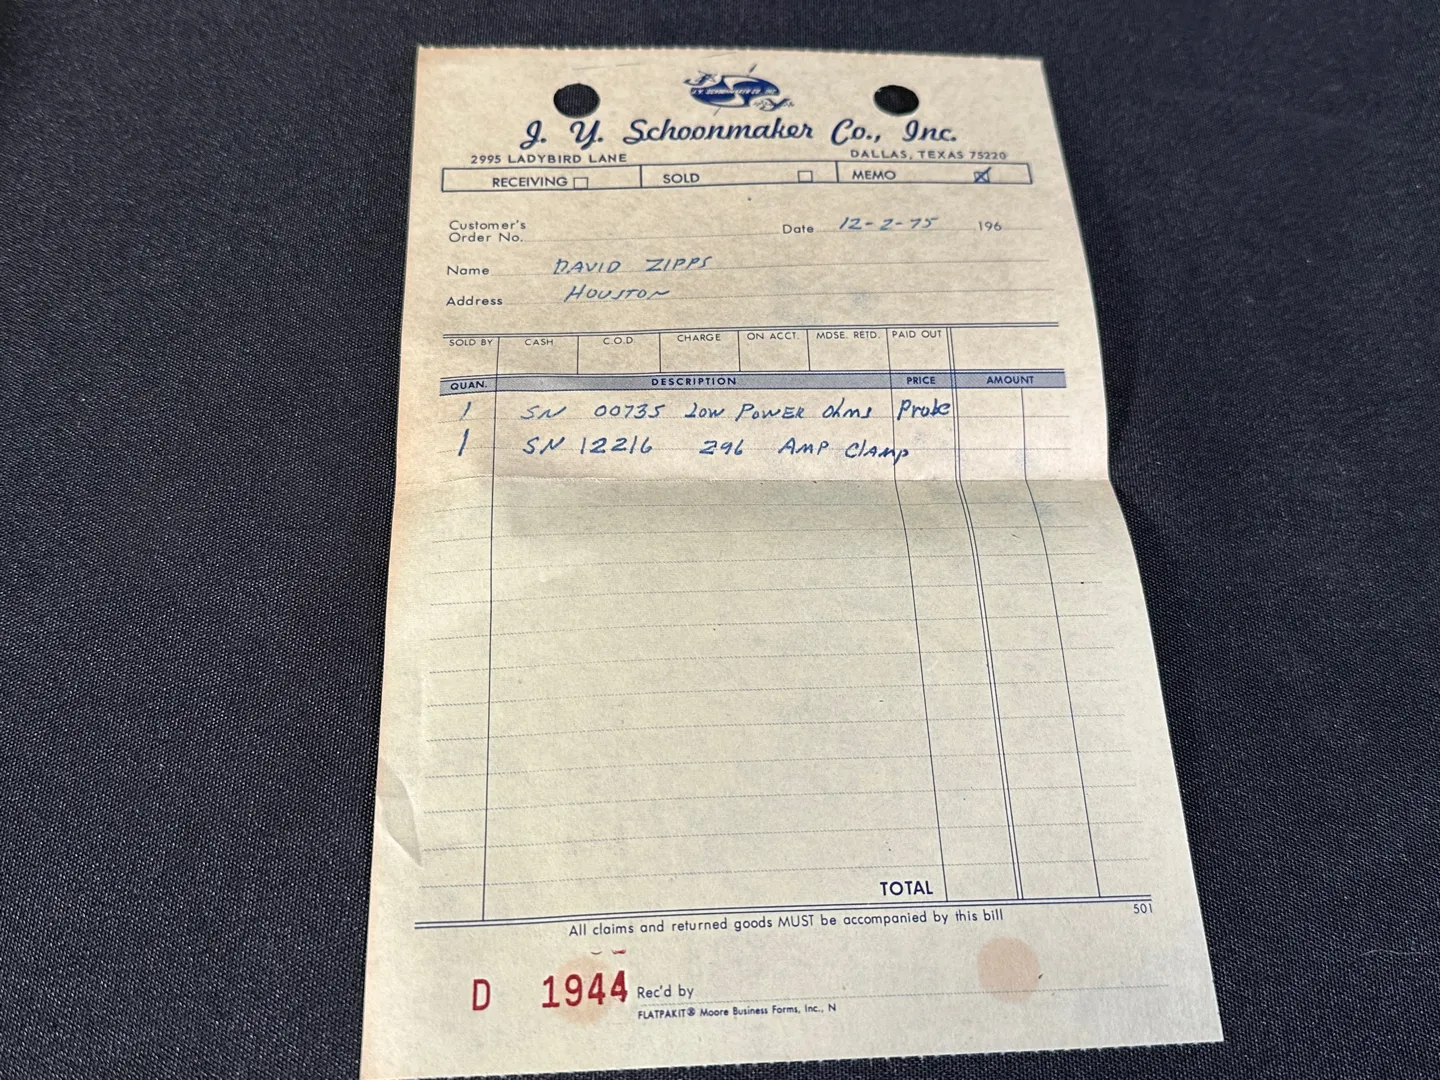 J. Y. SCHOONMAKER CO.
J. Y. Schoonmaker Co., Inc.
2995 LADYBIRD LANE DALLAS, TEXAS 75220
RECEIVING SOLD MEMO
Customer's
Order No. Date 12-2-75 196
Name DAVID ZIPPS
Address HOUSTON
SOLD BY CASH C.O.D CHARGE ON ACCT. MDSE. RETD. PAID OUT
QUAN. DESCRIPTION PRICE AMOUNT
1 SN 00735 Low POWER Ohms Probe
1 SN 12216 296 AMP ClAMp
TOTAL
501
All claims and returned goods MUST be accompanied by this bill
D 1944 Rec'd by
FLATPAKIT® Moore Business Forms, Inc., N